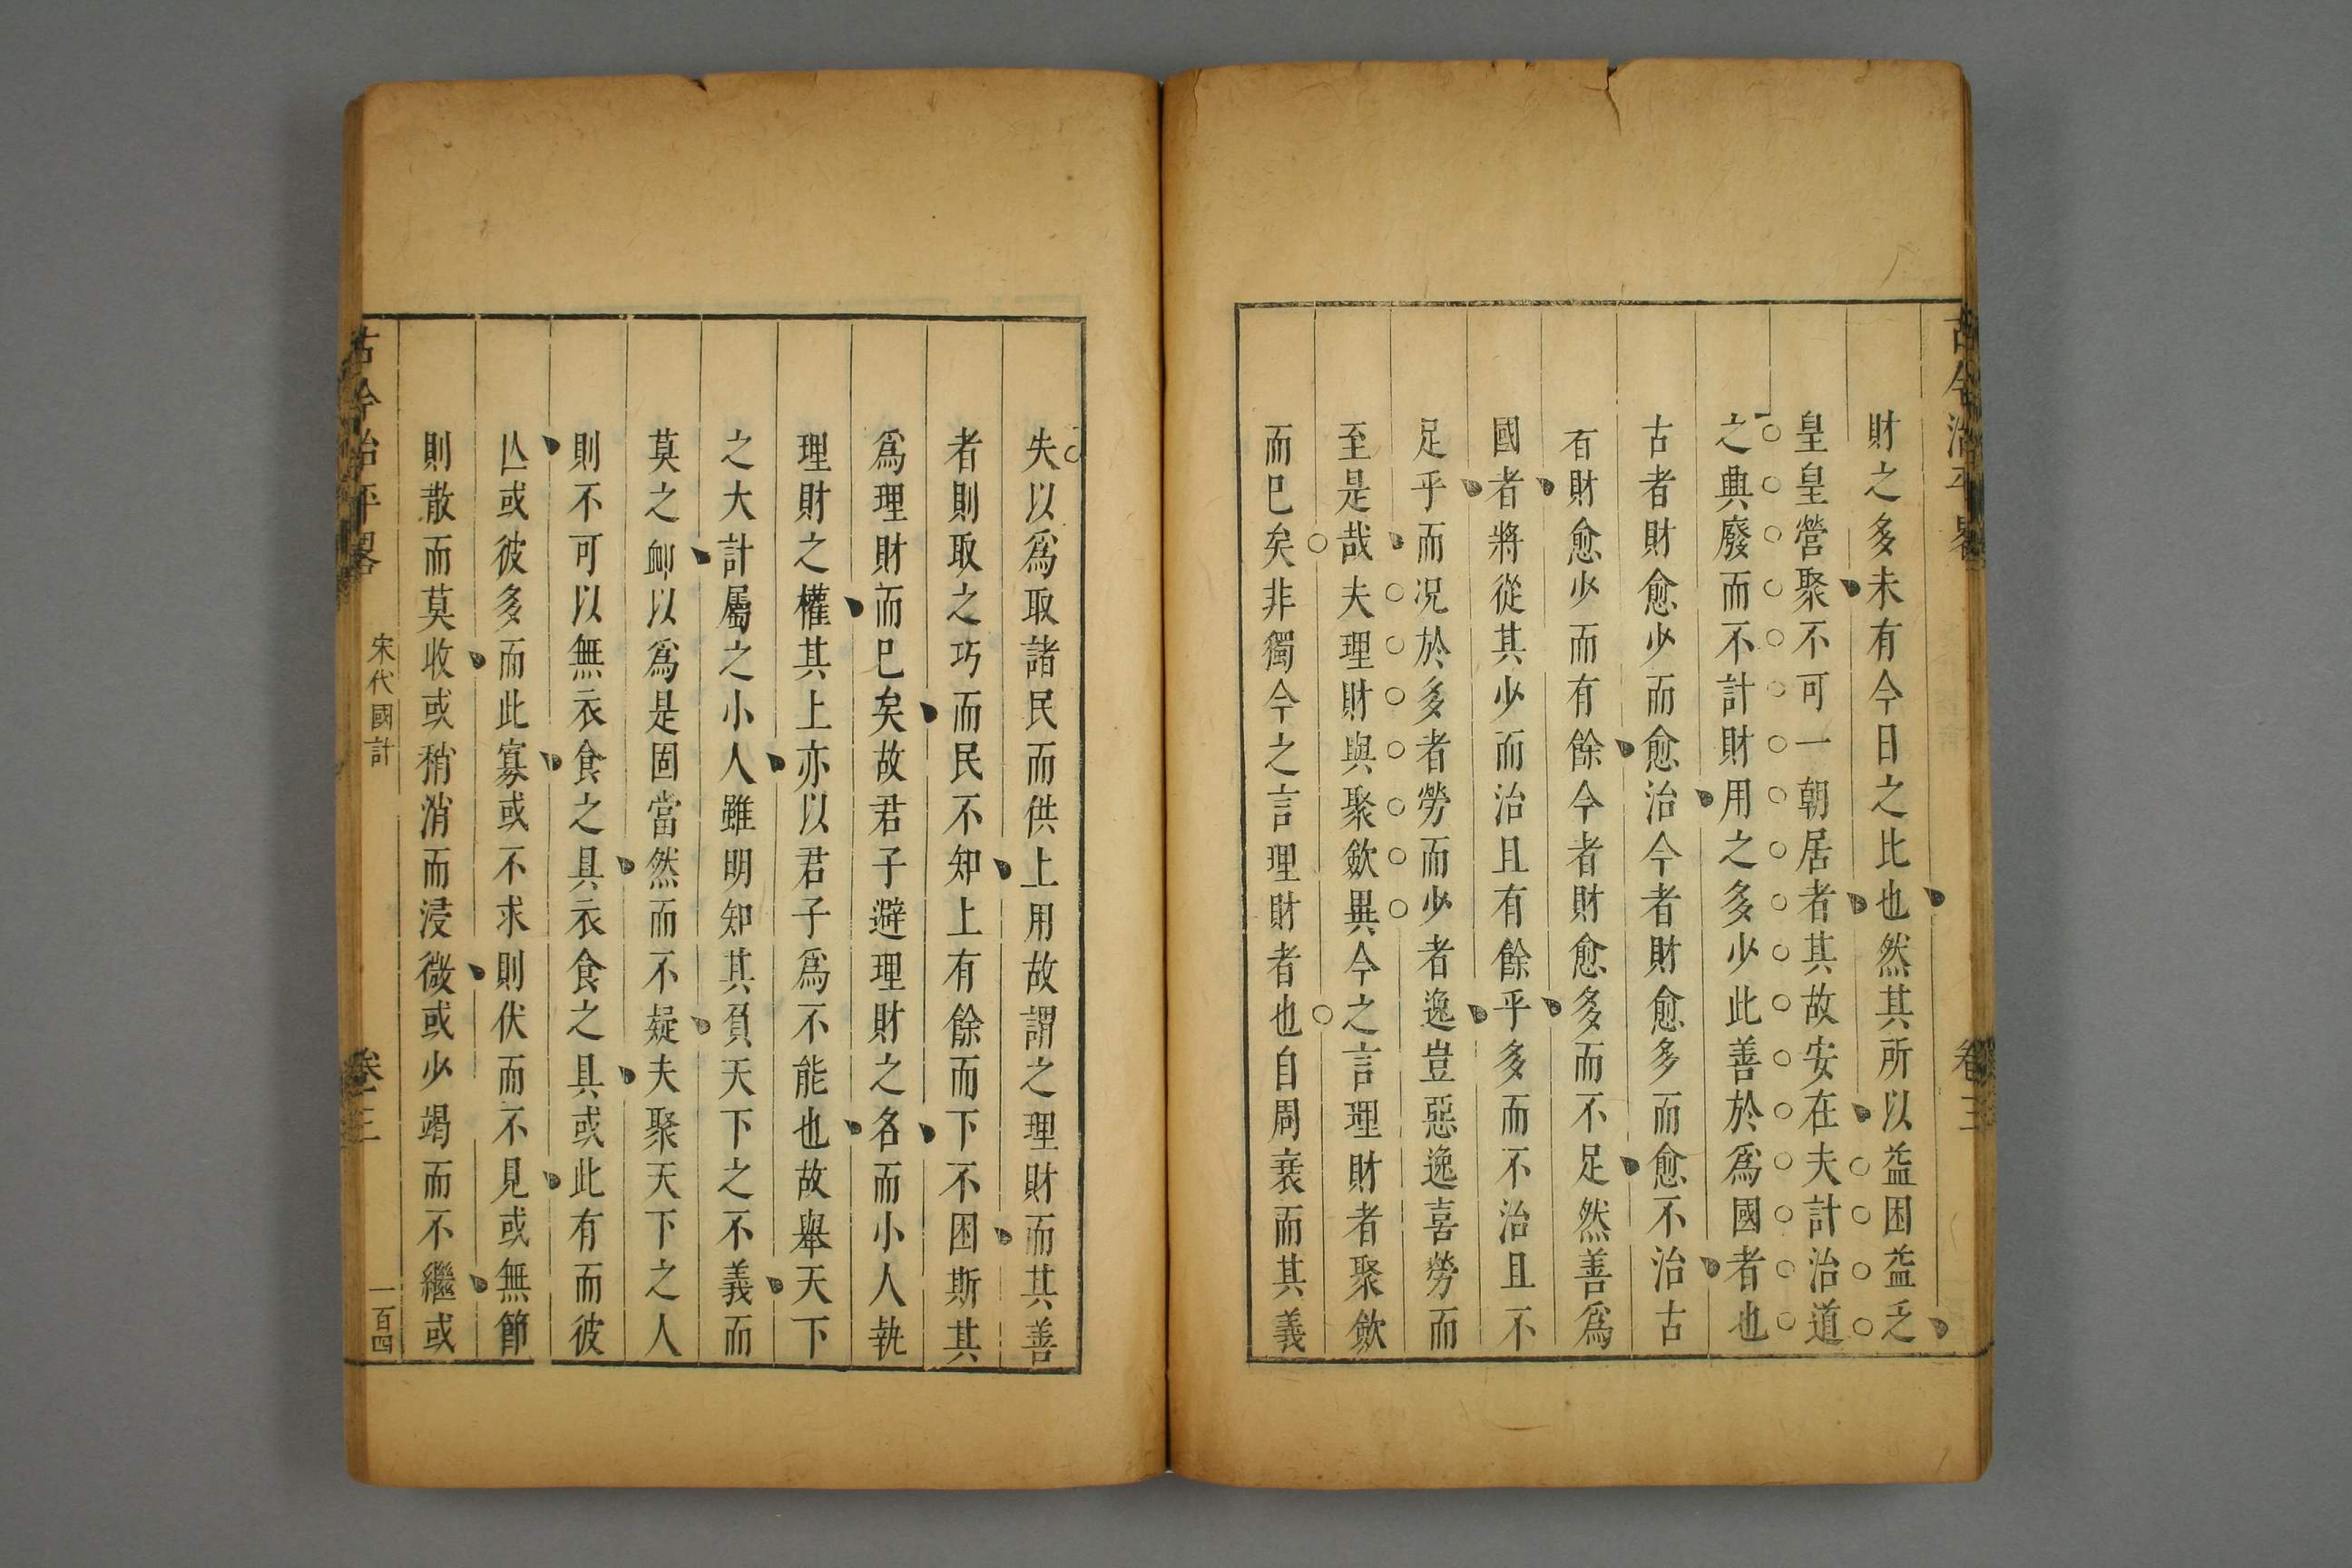 古今治平畧
卷三
財之多未有今日之比也然其所以益困益乏
皇皇營聚不可一朝居者其故安在夫計治道
之典廢而不計財用之多少此善於爲國者也
古者財愈少而愈治今者財愈多而愈不治古
有財愈少而有餘今者財愈多而不足然善爲
國者將從其少而治且有餘乎多而不治且不
足乎而况於多者勞而少者逸豈惡逸喜勞而
至是哉夫理財與聚歛異今之言理財者聚歛
而巳矣非獨今之言理財者也自周衰而其義
失以爲取諸民而供上用故謂之理財而其善
者則取之巧而民不知上有餘而下不困斯其
爲理財而巳矣故君子避理財之名而小人執
理財之權其上亦以君子爲不能也故舉天下
之大計屬之小人雖明知其負天下之不義而
莫之䘏以爲是固當然而不疑夫聚天下之人
則不可以無衣食之具衣食之具或此有而彼
亾或彼多而此寡或不求則伏而不見或無節
則散而莫收或稍消而浸微或少竭而不繼或
古今治平畧
宋代國計
卷三
一百四